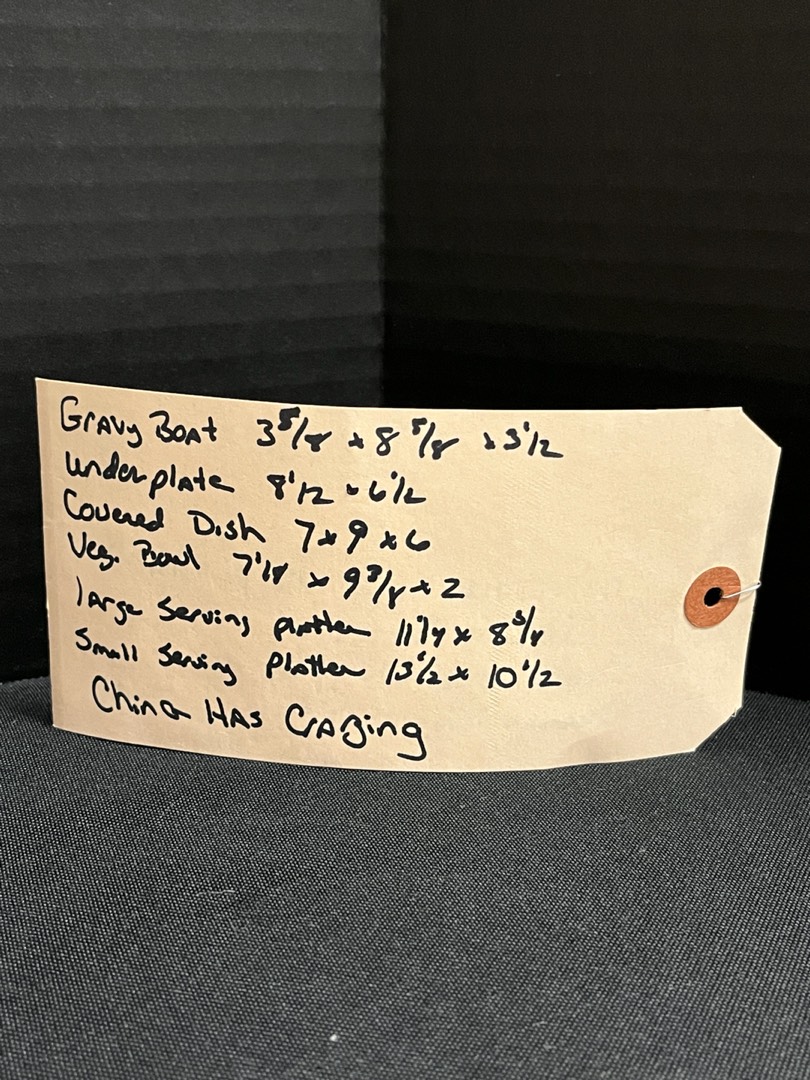 Gravy Boat 3 5/8 x 8 5/8 x 3 1/2
underplate 8 1/2 x 6 1/2
Covered Dish 7 x 9 x 6
Veg. Bowl 7 1/4 x 9 3/8 x 2
large Serving platter 11 1/4 x 8 3/4
Small Serving Platter 13 1/2 x 10 1/2
China HAS CRAZing